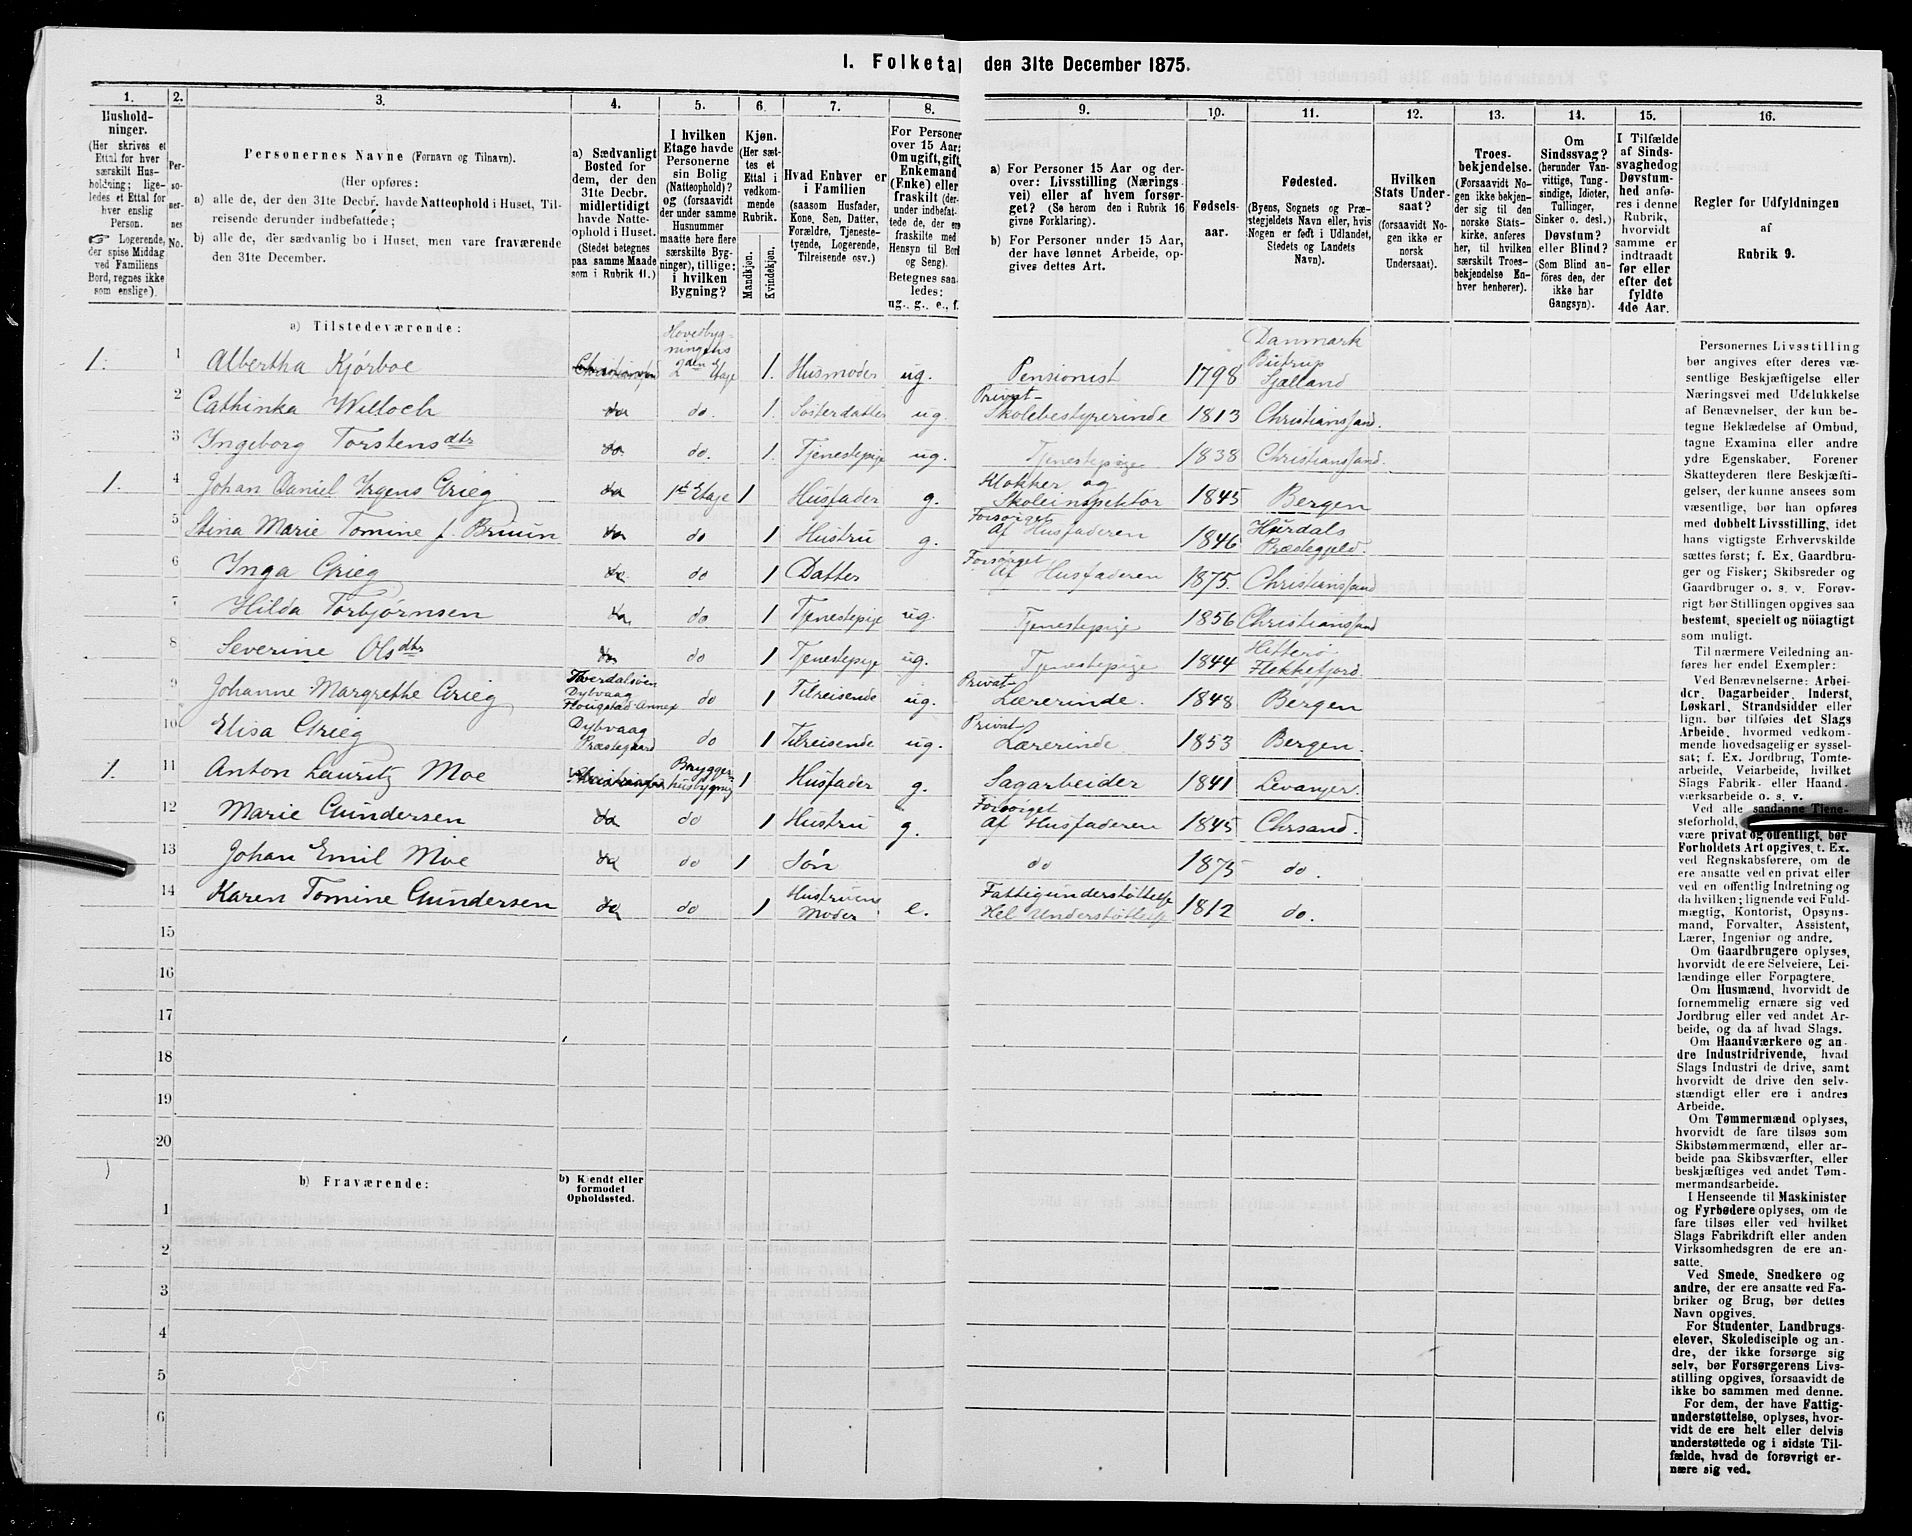 1. Folketal den 31te December 1875.
1. 2. 3. 4. 5. 6. 7. 8. 9. 10. 11. 12. 13. 14. 15. 16.
Hushold-
ninger.
(Her skrives et
Ettal for hver
særskilt Hus-
holdning; lige-
ledes et Ettal for
hver enslig
Person.
☞ Logerende,
der spise Middag
ved Familiens
Bord, regnes ikke
som enslige).
Per-
so-
ner-
nes
No.
Personernes Navne (Fornavn og Tilnavn).
(Her opføres:
a) alle de, der den 31te Decbr. havde Natteophold i Huset, Til-
reisende derunder indbefattede;
b) alle de, der sædvanlig bo i Huset, men vare fraværende
den 31te December.
a) Sædvanligt
Bosted for
dem, der den
31te Decbr.
midlertidigt
havde Natte-
ophold i Huset.
(Stedet betegnes
paa samme Maade
som i Rubrik 11.)
I hvilken
Etage havde
Personerne
sin Bolig
(Natteophold)?
og (forsaavidt
der under samme
Husnummer
maatte høre flere
særskilte Byg-
ninger), tillige:
i hvilken
Bygning?
Kjøn.
(Her sæt-
tes et
Ettal i
vedkom-
mende
Rubrik.
Mandkjøn.
Kvindekjøn.
Hvad Enhver er
i Familien
(saasom Husfader,
Kone, Søn, Datter,
Forældre, Tjeneste-
tyende, Logerende,
Tilreisende osv.)
For Personer
over 15 Aar:
Om ugift, gift,
Enkemand
(Enke) eller
fraskilt (der-
under indbefat-
tede de, der ere
fraskilte med
Hensyn til Bord
og Seng).
Betegnes saa-
ledes:
ug., g., e., f.
a) For Personer 15 Aar og der-
over: Livsstilling (Nærings-
vei) eller af hvem forsør-
get? (Se herom den i Rubrik 16
givne Forklaring).
b) For Personer under 15 Aar,
der have lønnet Arbeide, op-
gives dettes Art.
Fødsels-
aar.
Fødested.
(Byens, Sognets og Præ-
stegjeldets Navn eller, hvis
Nogen er født i Udlandet,
Stedets og Landets
Navn).
Hvilken
Stats Under-
saat?
(forsaavidt No-
gen ikke er
norsk
Undersaat).
Troes-
bekjendelse.
(Forsaavidt No-
gen ikke bekjen-
der sig til den
norske Stats-
kirke, anføres
her, til hvilken
særskilt Troes-
bekjendelse En-
hver henhører).
Om
Sindssvag?
(herunder Van-
vittige, Tung-
sindige, Idioter,
Tullinger,
Sinker o. desl.)
Døvstum?
eller Blind?
(Som Blind an-
føres den, der
ikke har
Gangsyn).
I Tilfælde
af Sinds-
svaghed og
Døvstum-
hed anfø-
res i denne
Rubrik,
hvorvidt
samme er
indtraadt
før eller
efter det
fyldte
4de Aar.
Regler for Udfyldningen
af
Rubrik 9.
a) Tilstedeværende:
1. 1 Albertha Kjørboe Christiansand Hovedbyg-
ningens
2den Etage 1. Husmoder ug. Pensionist 1798 Danmark
Sjælland
2 Cathinka Willoch do do. 1. Søsterdatter ug. Privat-
Skolebestyrerinde 1813 Christianssand.
3 Ingeborg Torstensdtr do do. 1. Tjenestepige ug. Tjenestepige 1838 Christianssand.
1. 4 Johan Daniel Irgens Grieg do 1st Etage 1 Husfader g. Klokker og
Skoleinspektør 1845 Bergen
5 Stina Marie Tomine f. Bruun do do 1 Hustru g. Forsørget
Af Husfaderen 1846 Hurdals
Præstegjeld.
6 Inga Grieg do do 1 Datter Forsørget
Af Husfaderen 1875. Christianssand
7 Hilda Torbjørnsen do do 1 Tjenestepige ug. Tjenestepige 1856 Christianssand
8 Severine Olsdtr do do 1 Tjenestepige ug. Tjenestepige 1844 Hitterø
Flekkefjord.
9 Johanne Margrethe Grieg Dybvaag
Annex do 1 Tilreisende ug. Privat-
Lærerinde. 1848 Bergen
10 Elisa Grieg Dybvaag
Præstegaard do 1 Tilreisende ug. Privat-
Lærerinde. 1853 Bergen.
1. 11 Anton Lauritz Moe Christianssand Brygger-
husbygnig 1 Husfader g. Sagarbeider 1841 Levanger.
12 Marie Gundersen do do 1 Hustru g. Forsørget
Af Husfaderen 1845 Chrsand.
13 Johan Emil Moe do do 1 Søn do 1875 do.
14 Karen Tomine Gundersen do do 1 Hustruens
Moder e. Fattigunderstøttelse
Hel Understøttelse 1812 do.
15
16
17
18
19
20
b) Fraværende:
b) Kjendt eller
formodet
Opholdssted.
1
2
3
4
5
6
Personernes Livsstilling
bør angives efter deres væ-
sentlige Beskjæftigelse eller
Næringsvei med Udelukkelse
af Benævnelser, der kun be-
tegne Beklædelse af Ombud,
tagne Examina eller andre
ydre Egenskaber. Forener
Skatteyderen flere Beskjæfti-
gelser, der kunne ansees som
væsentlige, bør han opføres
med dobbelt Livsstilling, idet
hans vigtigste Erhvervskilde
sættes først; f. Ex. Gaardbru-
ger og Fisker; Skibsreder og
Gaardbruger o. s. v. Forøv-
rigt bør Stillingen opgives saa
bestemt, specielt og nöiagtigt
som muligt.
Til nærmere Veiledning an-
føres her endel Exempler:
Ved Benævnelserne: Arbei-
der, Dagarbeider, Inderst,
Løskarl, Strandsidder eller
lign. bør tilføies det Slags
Arbeide, hvormed vedkom-
mende hovedsagelig er syssel-
sat; f. Ex. Jordbrug, Tomte-
arbeide, Veiarbeide, hvilket
Slags Fabrik- eller Haand-
værksarbeide o. s. v.
Ved alle saadanne Tjene-
steforhold,
være privat og offentligt, bør
Forholdets Art opgives, t. Ex.
ved Regnskabsførere, om de
ere ansatte ved en privat eller
ved en offentlig Indretning og
da hvilken; lignende ved Fuld-
mægtig, Kontorist, Opsyns-
mand, Forvalter, Assistent,
Lærer, Ingeniør og andre.
Om Gaardbrugere oplyses,
hvorvidt de ere Selveiere, Lei-
lændinge eller Forpagtere.
Om Husmænd, hvorvidt de
fornemmelig ernære sig ved
Jordbrug eller ved andet Ar-
beide, og da af hvad Slags.
Om Haandværkere og an-
dre Industridrivende, hvad
Slags Industri de drive, samt
hvorvidt de drive den selv-
stændigt eller ere i andres
Arbeide.
Om Tømmermænd oplyses,
hvorvidt de fare tilsøs som
Skibstømmermænd, eller ar-
beide paa Skibsværfter, eller
beskjæftiges ved andet Tøm-
mermandsarbeide.
I Henseende til Maskinister
og Fyrbødere oplyses, om de
fare tilsøs eller ved hvilket
Slags Fabrikdrift eller anden
Virksomhedsgren de ere an-
satte.
Ved Smede, Snedkere og
andre, der ere ansatte ved Fa-
briker og Brug, bør dettes
Navn opgives.
For Studenter, Landbrugs-
elever, Skoledisciple og an-
dre, der ikke forsørge sig
selv, bør Forsørgerens Livs-
stilling opgives, forsaavidt de
ikke bo sammen med denne.
For dem, der have Fattig-
understøttelse, oplyses, hvor-
vidt de ere helt eller delvis
understøttede og i sidste Til-
fælde, hvad de forøvrigt er-
nære sig ved.